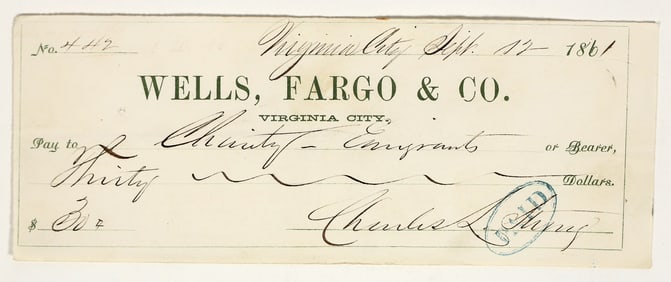 No. 442 Virginia City, Sept. 12 1861
WELLS, FARGO & CO.
VIRGINIA CITY,
Pay to Charity - Emigrants or Bearer,
Thirty Dollars.
$ 30
Charles L. Strong
PAID